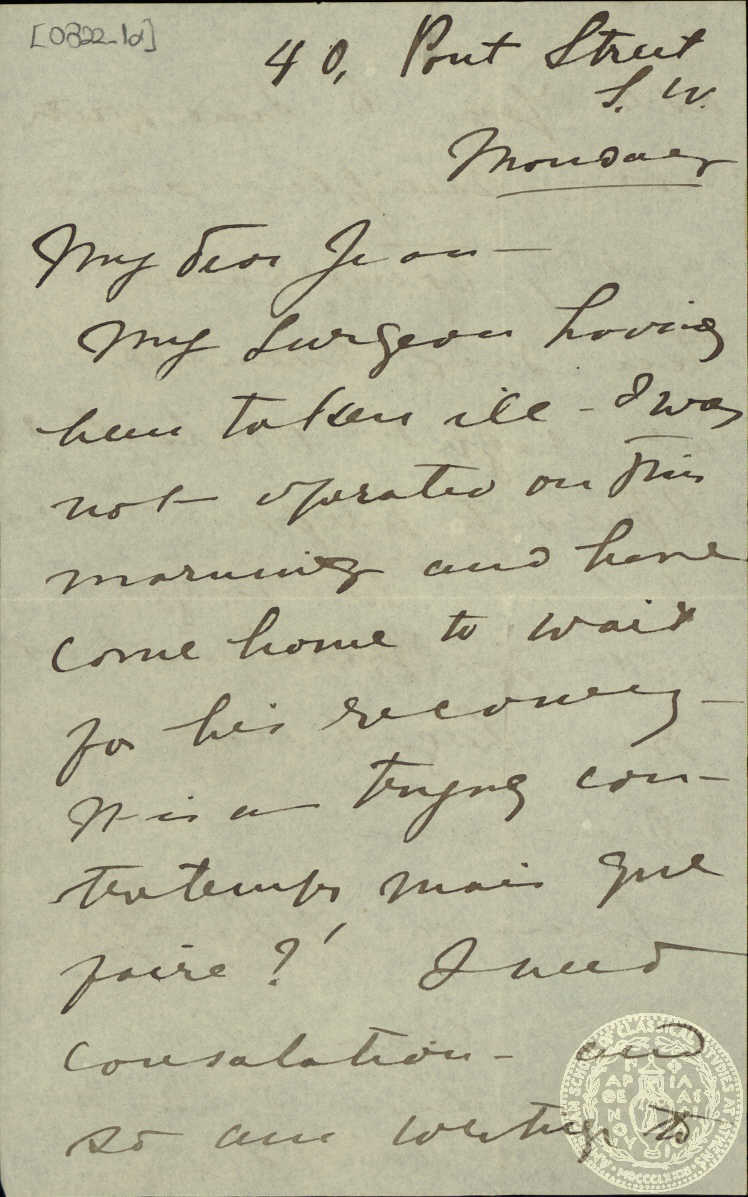 [0322-1d]
40, Pont Street
S. W.
Monday
My dear Jean —
My Surgeon having
been taken ill - I was
not operated on this
morning and have
come home to wait
for his recovery —
It is a trying con-
tretemps, mais que
faire?! I need
consolation - and
so am writing to